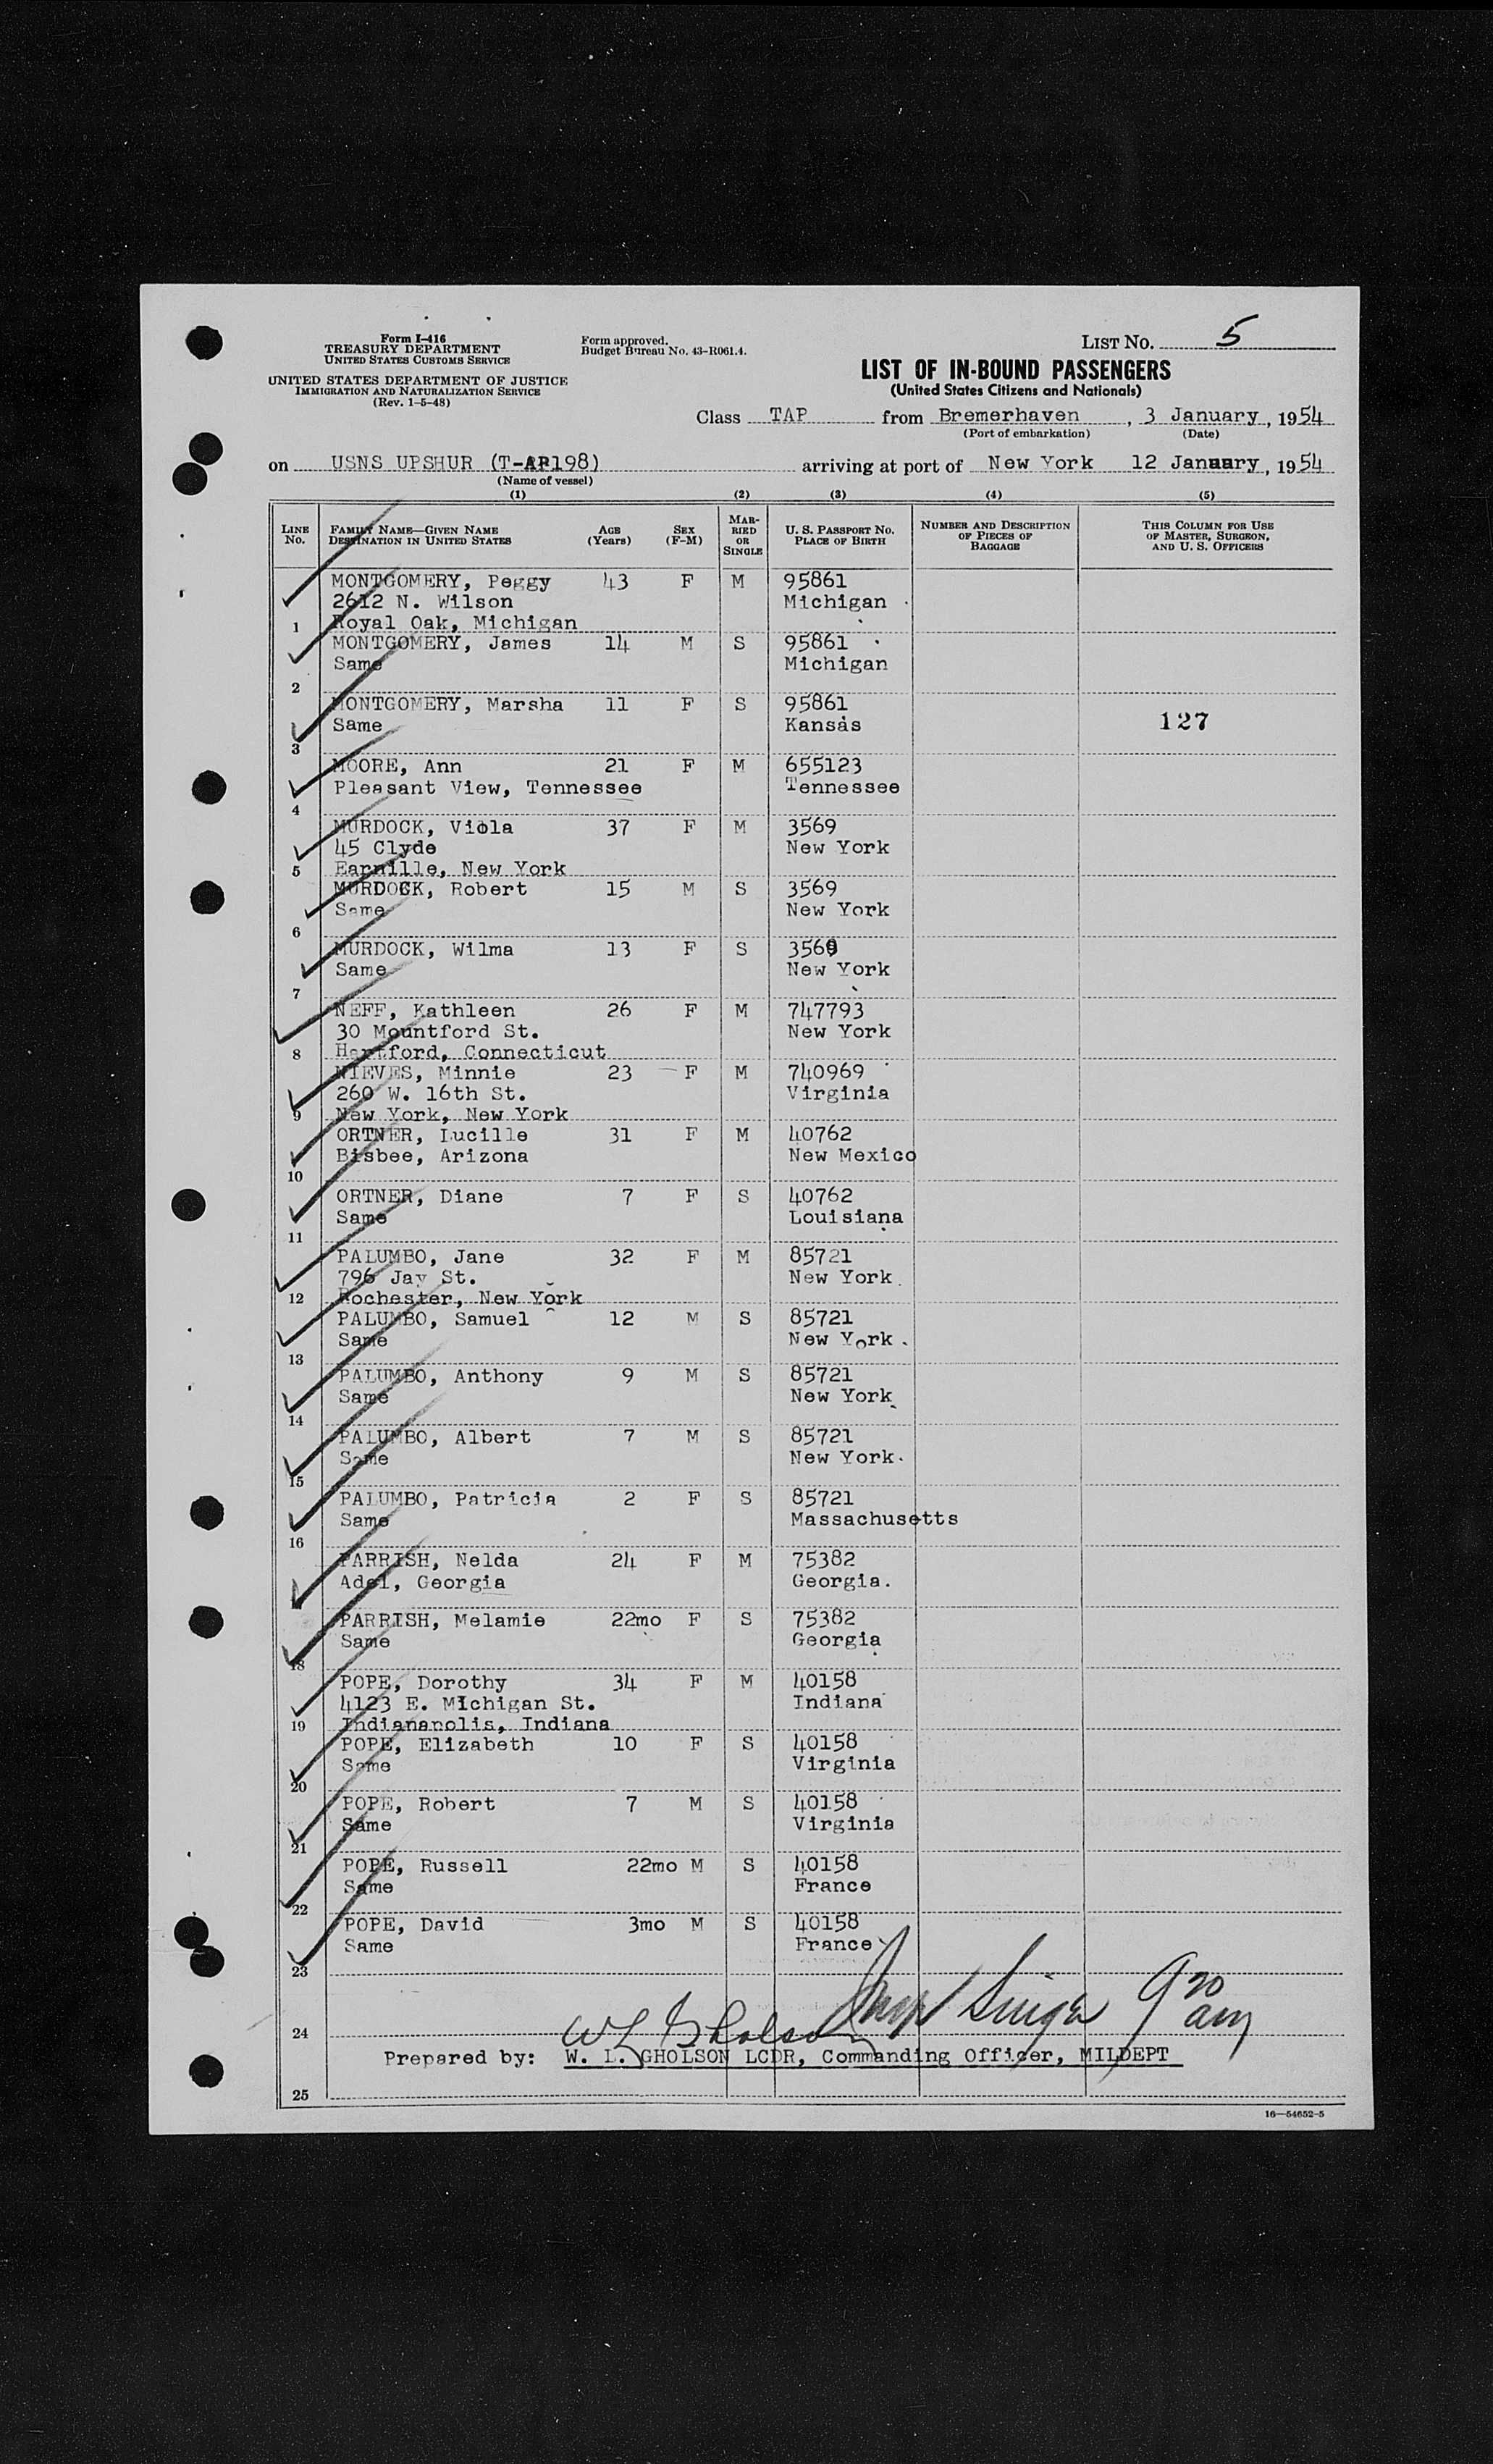 Form I-416
TREASURY DEPARTMENT
UNITED STATES CUSTOMS SERVICE
UNITED STATES DEPARTMENT OF JUSTICE
IMMIGRATION AND NATURALIZATION SERVICE
(Rev. 1-5-48)
Form approved.
Budget Bureau No. 43-R061.4.
LIST NO. 5
LIST OF IN-BOUND PASSENGERS
(United States Citizens and Nationals)
Class TAP from Bremerhaven, 3 January, 1954
(Port of embarkation) (Date)
on USNS UPSHUR (T-AP198) arriving at port of New York 12 January, 1954
(Name of vessel)
(1) (2) (3) (4) (5)
LINE No. FAMILY NAME—GIVEN NAME DESTINATION IN UNITED STATES AGE (Years) SEX (F-M) MARRIED OR SINGLE U. S. PASSPORT NO. PLACE OF BIRTH NUMBER AND DESCRIPTION OF PIECES OF BAGGAGE THIS COLUMN FOR USE OF MASTER, SURGEON, AND U. S. OFFICERS
MONTGOMERY, Peggy 43 F M 95861
2612 N. Wilson Michigan
1 Royal Oak, Michigan
MONTGOMERY, James 14 M S 95861
Same Michigan
2
MONTGOMERY, Marsha 11 F S 95861
Same Kansas 127
3
MOORE, Ann 21 F M 655123
Pleasant View, Tennessee Tennessee
4
MURDOCK, Viola 37 F M 3569
45 Clyde New York
5 Earnille, New York
MURDOCK, Robert 15 M S 3569
Same New York
6
MURDOCK, Wilma 13 F S 3569
Same New York
7
NEFF, Kathleen 26 F M 747793
30 Mountford St. New York
8 Hartford, Connecticut
NIEVES, Minnie 23 F M 740969
260 W. 16th St. Virginia
9 New York, New York
ORTNER, Lucille 31 F M 40762
Bisbee, Arizona New Mexico
10
ORTNER, Diane 7 F S 40762
Same Louisiana
11
PALUMBO, Jane 32 F M 85721
796 Jay St. New York
12 Rochester, New York
PALUMBO, Samuel 12 M S 85721
Same New York
13
PALUMBO, Anthony 9 M S 85721
Same New York
14
PALUMBO, Albert 7 M S 85721
Same New York
15
PALUMBO, Patricia 2 F S 85721
Same Massachusetts
16
PARRISH, Nelda 24 F M 75382
Adel, Georgia Georgia.
PARRISH, Melamie 22mo F S 75382
Same Georgia
18
POPE, Dorothy 34 F M 40158
4123 E. Michigan St. Indiana
19 Indianapolis, Indiana
POPE, Elizabeth 10 F S 40158
Same Virginia
20
POPE, Robert 7 M S 40158
Same Virginia
21
POPE, Russell 22mo M S 40158
Same France
22
POPE, David 3mo M S 40158
Same France
23
W L Gholson Singer 9 20 am
24
Prepared by: W. L. GHOLSON LCDR, Commanding Officer, MILDEPT
25
16—54652-5